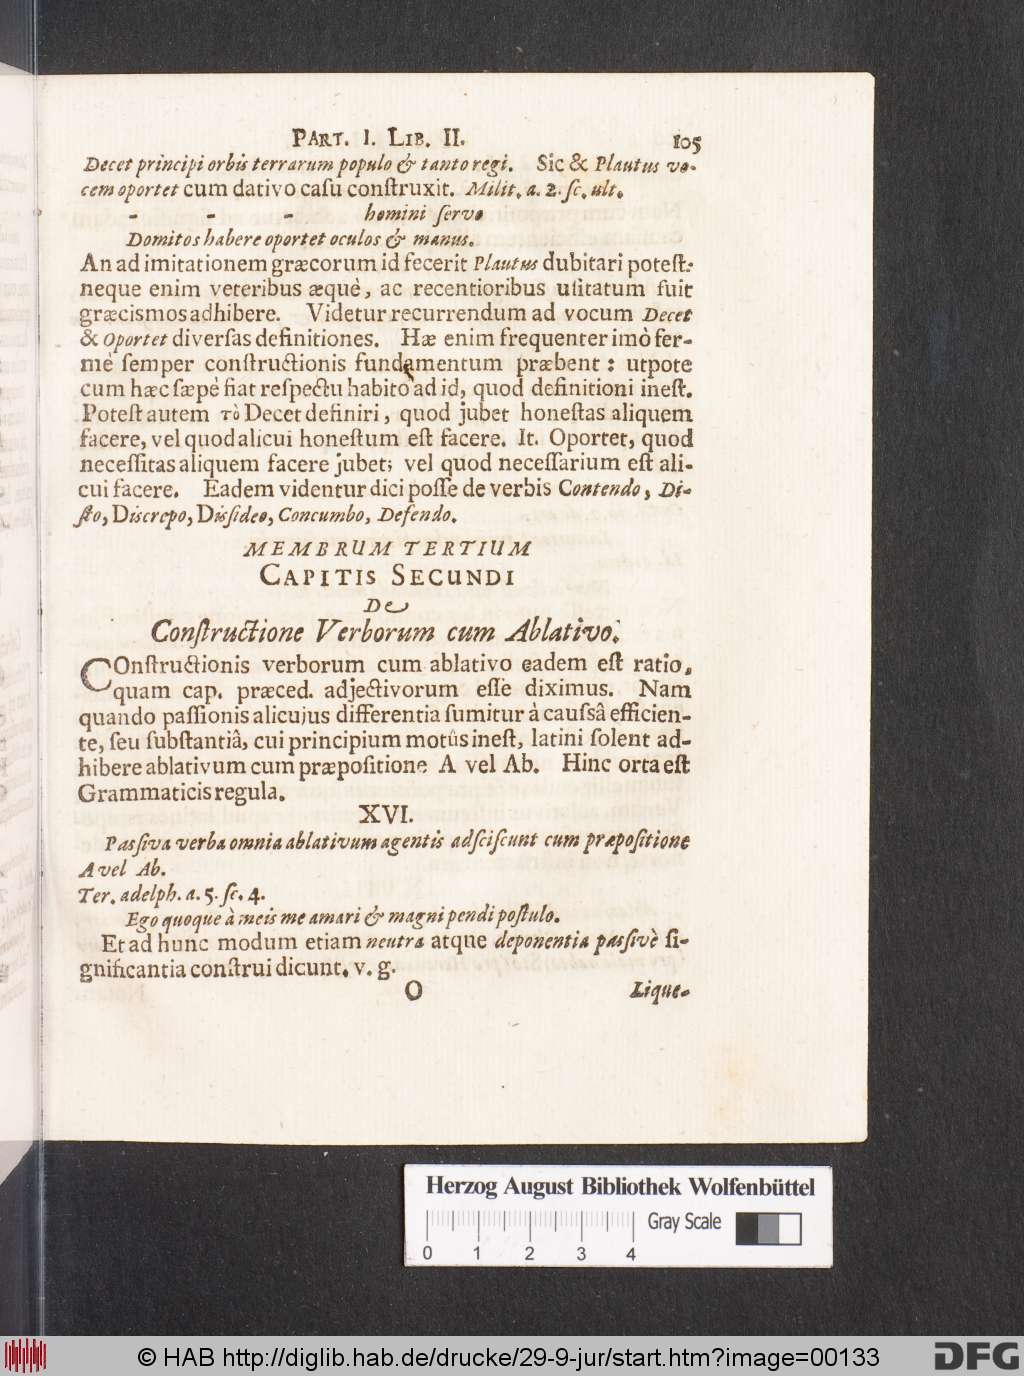 PART. I. LIB. II. 105
Decet principi orbis terrarum populo & tanto regi. Sic & Plautus vo-
cem oportet cum dativo caſu conſtruxit. Milit. a. 2. ſc. ult.
- - - homini ſervo
Domitos habere oportet oculos & manus.
An ad imitationem græcorum id fecerit Plautus dubitari poteſt:
neque enim veteribus æquè, ac recentioribus uſitatum fuit
græcismos adhibere. Videtur recurrendum ad vocum Decet
& Oportet diverſas definitiones. Hæ enim frequenter imò fer-
mè ſemper conſtructionis fundamentum præbent: utpote
cum hæc ſæpè fiat reſpectu habito ad id, quod definitioni ineſt.
Poteſt autem τὸ Decet definiri, quod jubet honeſtas aliquem
facere, vel quod alicui honeſtum eſt facere. It. Oportet, quod
neceſſitas aliquem facere jubet; vel quod neceſſarium eſt ali-
cui facere. Eadem videntur dici poſſe de verbis Contendo, Di-
ſto, Discrepo, Disſideo, Concumbo, Defendo.
MEMBRUM TERTIUM
CAPITIS SECUNDI
De
Conſtructione Verborum cum Ablativo.
COnſtructionis verborum cum ablativo eadem eſt ratio,
quam cap. præced. adjectivorum eſſe diximus. Nam
quando paſſionis alicujus differentia ſumitur à cauſsâ efficien-
te, ſeu ſubſtantiâ, cui principium motûs ineſt, latini ſolent ad-
hibere ablativum cum præpoſitione A vel Ab. Hinc orta eſt
Grammaticis regula.
XVI.
Pasſiva verba omnia ablativum agentis adſciſcunt cum præpoſitione
A vel Ab.
Ter. adelph. a. 5. ſc. 4.
Ego quoque à meis me amari & magni pendi poſtulo.
Et ad hunc modum etiam neutra atque deponentia pasſivè ſi-
gnificantia conſtrui dicunt. v. g.
O Lique-
Herzog August Bibliothek Wolfenbüttel
Gray Scale
0 1 2 3 4
© HAB http://diglib.hab.de/drucke/29-9-jur/start.htm?image=00133
DFG